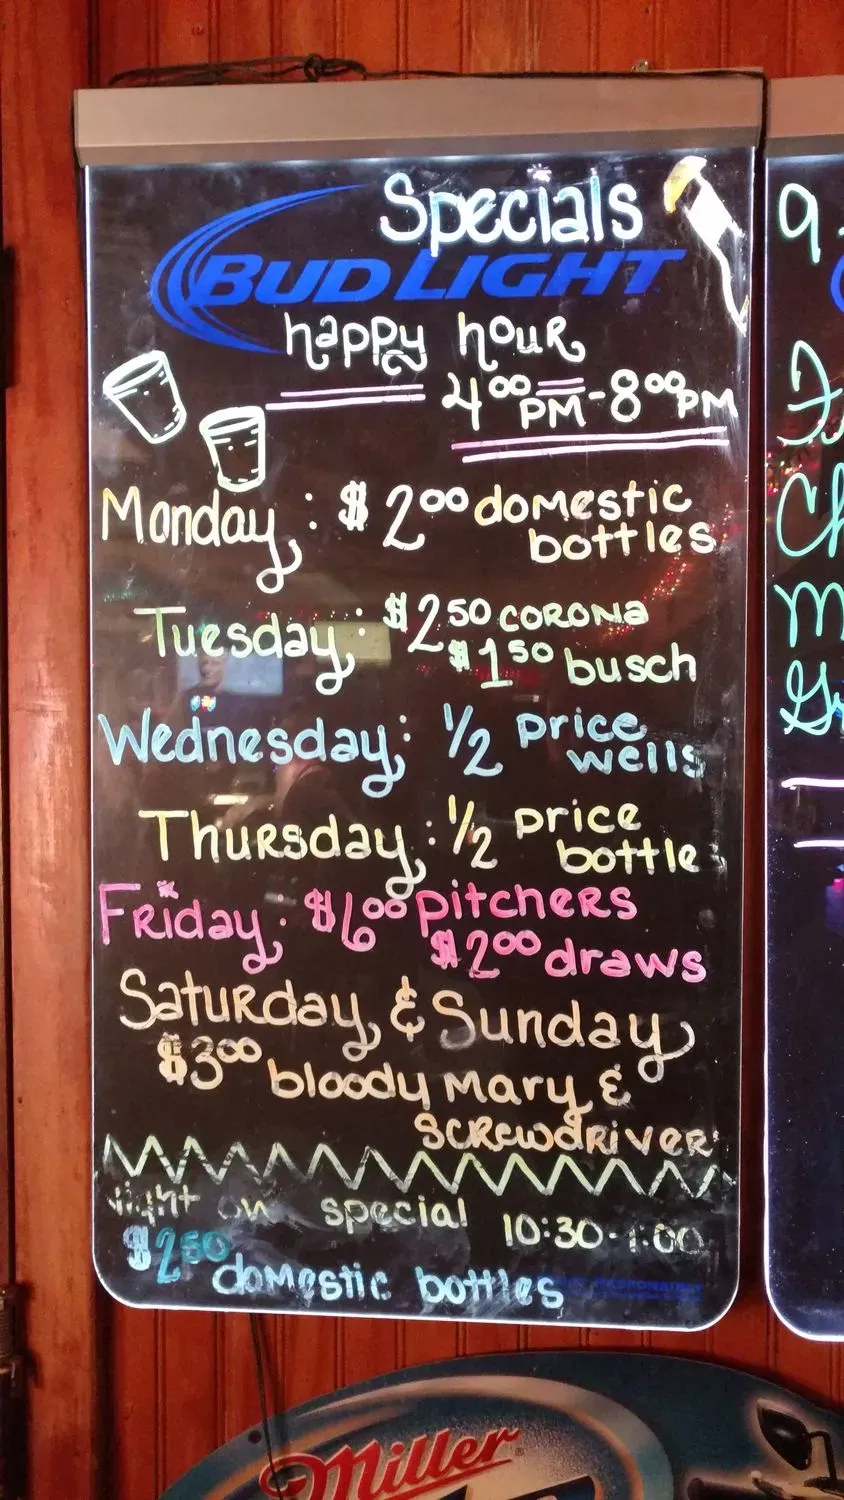 Specials
BUD LIGHT
happy hour
4⁰⁰PM-8⁰⁰PM
Monday: $2⁰⁰ domestic
bottles
Tuesday: $2⁵⁰ CORONA
$1⁵⁰ busch
Wednesday: 1/2 price
wells
Thursday: 1/2 price
bottle
Friday: $6⁰⁰ pitchers
$2⁰⁰ draws
Saturday & Sunday
$3⁰⁰ bloody Mary &
SCREWDRIVER
night owl special 10:30-1:00
$2⁵⁰
domestic bottles
Miller